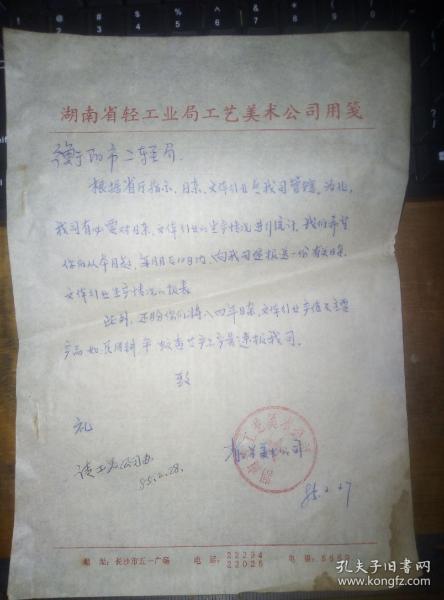 湖南省轻工业局工艺美术公司用笺
衡阳市二轻局
根据省厅指示,日杂、文体行业归我司管理。为此,
我司有必要对日杂、文体行业的生产情况进行统计。我们希望
你们从本月起,每月月后10日内,向我司速报送一份有关日杂、
文体行业生产情况的报表
此外,还盼你们将八四年日杂、文体行业产值及主要
产品
产量速报我司。
致
礼
公司
85.2.27
请工艺公司办
85.2.28.
地址:长沙市五一广场 电话:22294 22025 电报:5550
孔夫子旧书网
www.kongfz.com